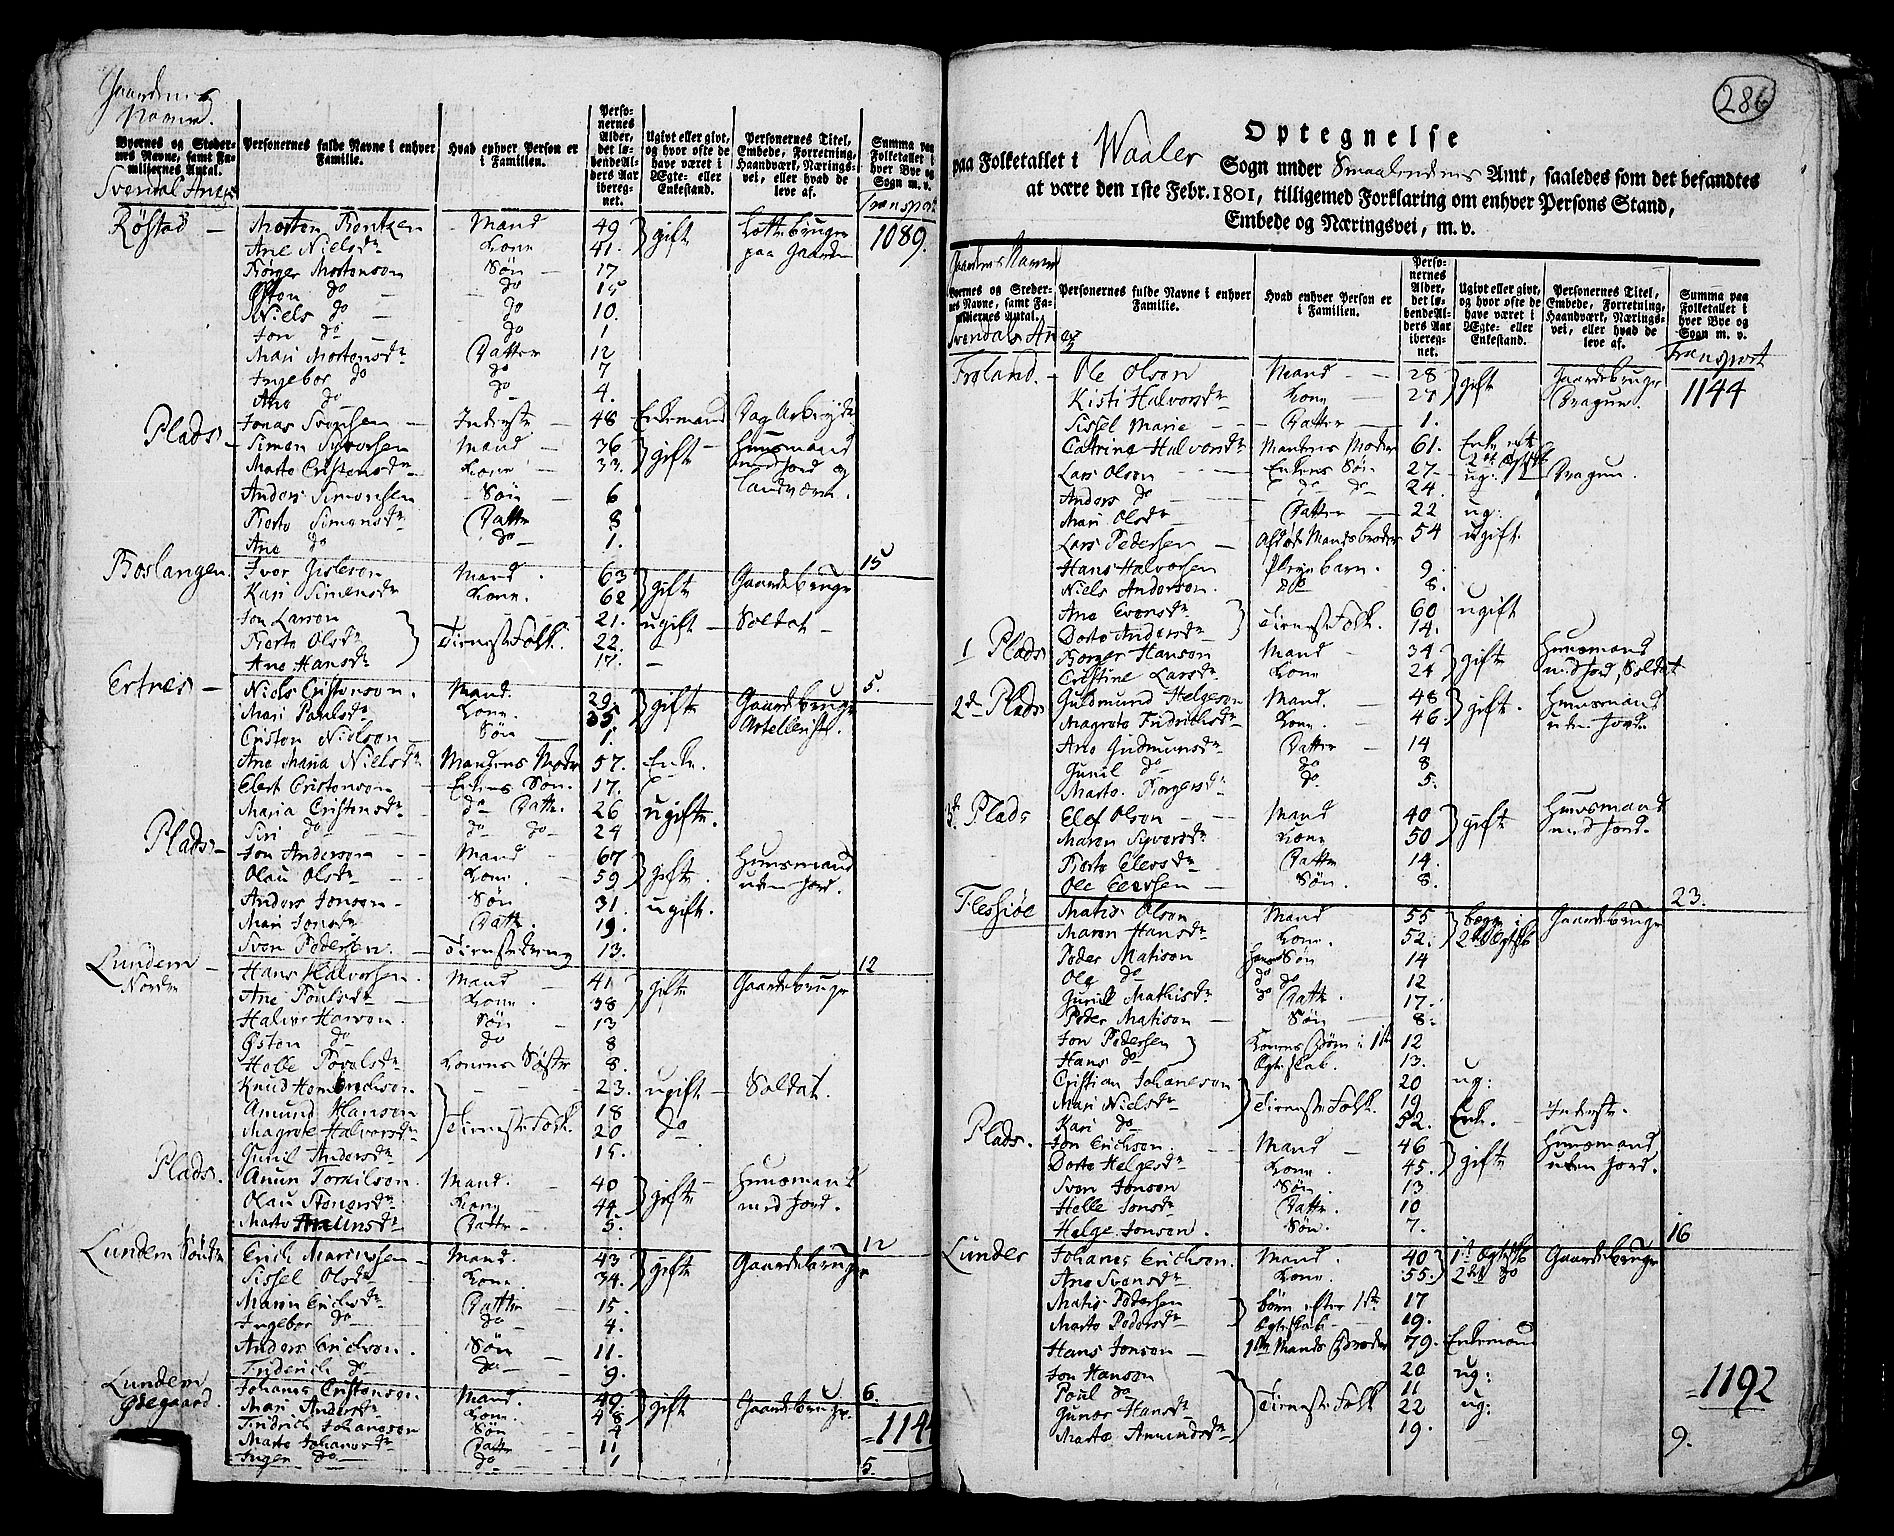 Gaardenes
Navne.
Byernes og Steder-
nes Navne, samt Fa-
miliernes Antal.
Personernes fulde Navne i enhver
Familie.
Hvad enhver Person er
i Familien.
Perso-
nernes
Alder,
det lø-
bende Al-
ders Aar
ibereg-
net.
Ugivt eller givt,
og hvor ofte de
have været i
Ægte- eller
Enkestand.
Personernes Titel,
Embede, Forretning,
Haandværk, Nærings-
vei, eller hvad de
leve af.
Summa paa
Folketallet i
hver Bye og
Sogn m. v.
Svendal Anex
Transport
Røstad — Morten Mand 49 gift paa Gaarden 1089.
Ane Nielsdr Kone 41.
Børger Mortenson Søn 17
Østen do do 15
Niels do do 10.
Jon do do 1
Mari Mortensdr Datter 12
Ingebor do do 7
Ane do do 4.
Jonas Svensen Inderste 48 Enkemand Dag Arbeyder
Plads — Simen Syversen Mand 36 gift Huusmand
Marte Cristensdr Kone 33. med Jord og
Anders Simensen Søn 6 Landværn.
Berte Simensdr Datter 8
Ane do do 1. 15
Boslangen. Iver Gislesen Mand. 63 gift Gaardebruger
Kari Simensdr Kone. 62
Jon Larson 21. ugift Soldat
Berte Olsdr Tieneste Folk. 22.
Ane Hansdr 17. 5.
Ertnes — Niels Cristenson. Mand. 29. gift Gaardebruger
Mari Paulsdr Kone. 35. Artellerist.
Cristen Nielson Søn 1.
Ane Maria Nielsdr Mandens Moder 57. Enke.
Elert Cristenson Enkens Søn. 17.
Maria Cristensdr do Datter. 26 ugifte.
Siri do do do 24
Plads — Jon Anderson Mand 67 gifte. Huusmand
Olau Olsdr Kone. 59 uden Jord.
Anders Jonson Søn 31. ugift.
Mari Jonsdr Datter. 19.
Sven Pedersen Tienestedreng 13. 12
Lundem
Nordre
Hans Halvorsen. Mand 41 gifte Gaardebruger
Ane Poulsdr Kone. 38
Halvor Hanson. Søn 13
Østen do do 8
Helle Povelsdr Konens Søster 8.
Knud Henrichson. 23. ugift Soldat.
Amund Hanson 18
Magrete Halvorsdr Tieneste Folk. 20 do
Guril Andersdr 15.
Plads. Anun Torkilson Mand. 40 gifte Huusmand
Olau Stenersdr Kone 44. med Jord.
Marte Anunsdr Datter. 5. 12
Lundem Søndre Erich Mand. 43 gifte Gaardebruger
Sissel Olsdr Kone. 34.
Maren Erichsdr Datter 15.
Ingebor do do 4.
Anders Erichson. Søn 11.
Friderich do do 9. 6.
Lundem
Ødegaard. Johanes Cristenson Mand. 49. gift Gaardebruger.
Mari Andersdr Kone. 48
Fridrich Johanson Søn 4
Marte Johanesdr Datter 11
Ingen do do 1 5.
=1144
286
Optegnelse
paa Folketallet i Waaler Sogn under Smaalendenes Amt, saaledes som det befandtes
at være den 1ste Febr. 1801, tilligemed Forklaring om enhver Persons Stand,
Embede og Næringsvei, m. v.
Gaardenes Navne
Byernes og Steder-
nes Navne, samt Fa-
miliernes Antal.
Personernes fulde Navne i enhver
Familie.
Hvad enhver Person er
i Familien.
Perso-
nernes
Alder,
det lø-
bende Al-
ders Aar
ibereg-
net.
Ugivt eller givt,
og hvor ofte de
have været i
Ægte- eller
Enkestand.
Personernes Titel,
Embede, Forretning,
Haandværk, Nærings-
vei, eller hvad de
leve af.
Summa paa
Folketallet i
hver Bye og
Sogn m. v.
Svendals Anex
Transport
Froland. — Ole Olson Mand 28 gift Gaardebruger 1144
Kisti Halvorsdr Kone 27 Dragun.
Sissel Marie Datter 1.
Catrine Halvorsdr Mandens Moder 61. Enke
Lars Olson Enkens Søn 27 ug: Dragun.
Anders do do do 24.
Mari Olsdr Datter 22 ug:
Lars Pedersen Afdøde Mands broder 54 ugift.
Hans Halvorsen Pleyebarn. 9.
Niels Anderson. do 8.
Ane Evensdr 60 ugift
Dorte Andersdr Tieneste Folk. 14.
1 Plads Børger Hanson Mand 34 gifte Huusmand
Cristine Larsdr Kone 24 med Jord, Soldat
2den Plads Guldmund Helgeson Mand. 48 gift. Huusmand
Magrete Fridrichsdr Kone. 46. uden Jord.
Ane Gudmunsdr Datter 14
Gunil do do 8
Marte Børgersdr do. 5.
3de Plads Elef Olson Mand 40 gifte Huusmand
Maren Syversdr Kone 50 med Jord.
Berte Elevsdr Datter 14.
Ole Elevsen Søn. 8. 23.
Flessiøe Matis Olson Mand 55 begge i Gaardebruger
Maren Hansdr Kone. 52. 2det Ægteskab
Peder Matison Søn 14
Ole do do do 12
Guril Mathisdr do Datter. 17.
Peder Matison Søn 8.
Jon Pedersen Konens Børn i 1ste 12
Hans do Ægteskab. 13.
Cristian Johaneson 20 ug:
Mari Nielsdr Tieneste Folk. 19
Kari do 52. Enke. Inderste.
Plads. Jon Erichson. Mand 46 gifte Huusmand
Dorte Helgesdr Kone. 45. uden Jord.
Sven Jonson Søn. 13
Helle Jonsdr Datter 10
Helge Jonson. Søn. 7. 16
Lunder Johanes Erichson. Mand 40 1ste Ægteskab Gaardebruger
Ane Svensdr Kone. 55. 2det do
Matis Pedersen børn efter 1ste 17
Marte Pedersdr Ægteskab 19.
Hans Jonson 1ste Mands Broder 79. Enkemand
Jon Hanson 20 ug:
Poul do 11
Gunor Hansdr Tieneste Folk 22 ug:
Marte Amundsdr 19. 9.
=1192